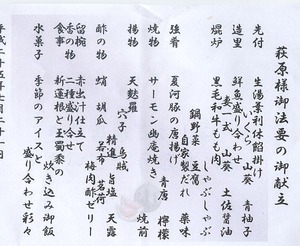 萩原様御法要の御献立
先付 生湯葉利休餡掛け
いくら 山葵 青柚子
造里 鮮魚盛り合わせ
妻一式 山葵 土佐醤油
焜炉 黒毛和牛もも肉
しゃぶしゃぶ
鍋野菜 豆腐
自家製だれ 薬味
強肴 夏河豚の唐揚げ
青唐 檸檬
焼物 サーモン幽庵焼き
焼前
揚物 天麩羅
穴子 烏賊
精進 旨塩 天露
酢の物 蛸 胡瓜
若布 茗荷
梅肉酢ゼリー
留椀 赤出汁仕立て
香の物 二種盛り
食事 新蓮根と玉蜀黍の
炊き込み御飯
水菓子 季節のアイスと
盛り合わせ彩々
平成二十五年七月二十一日